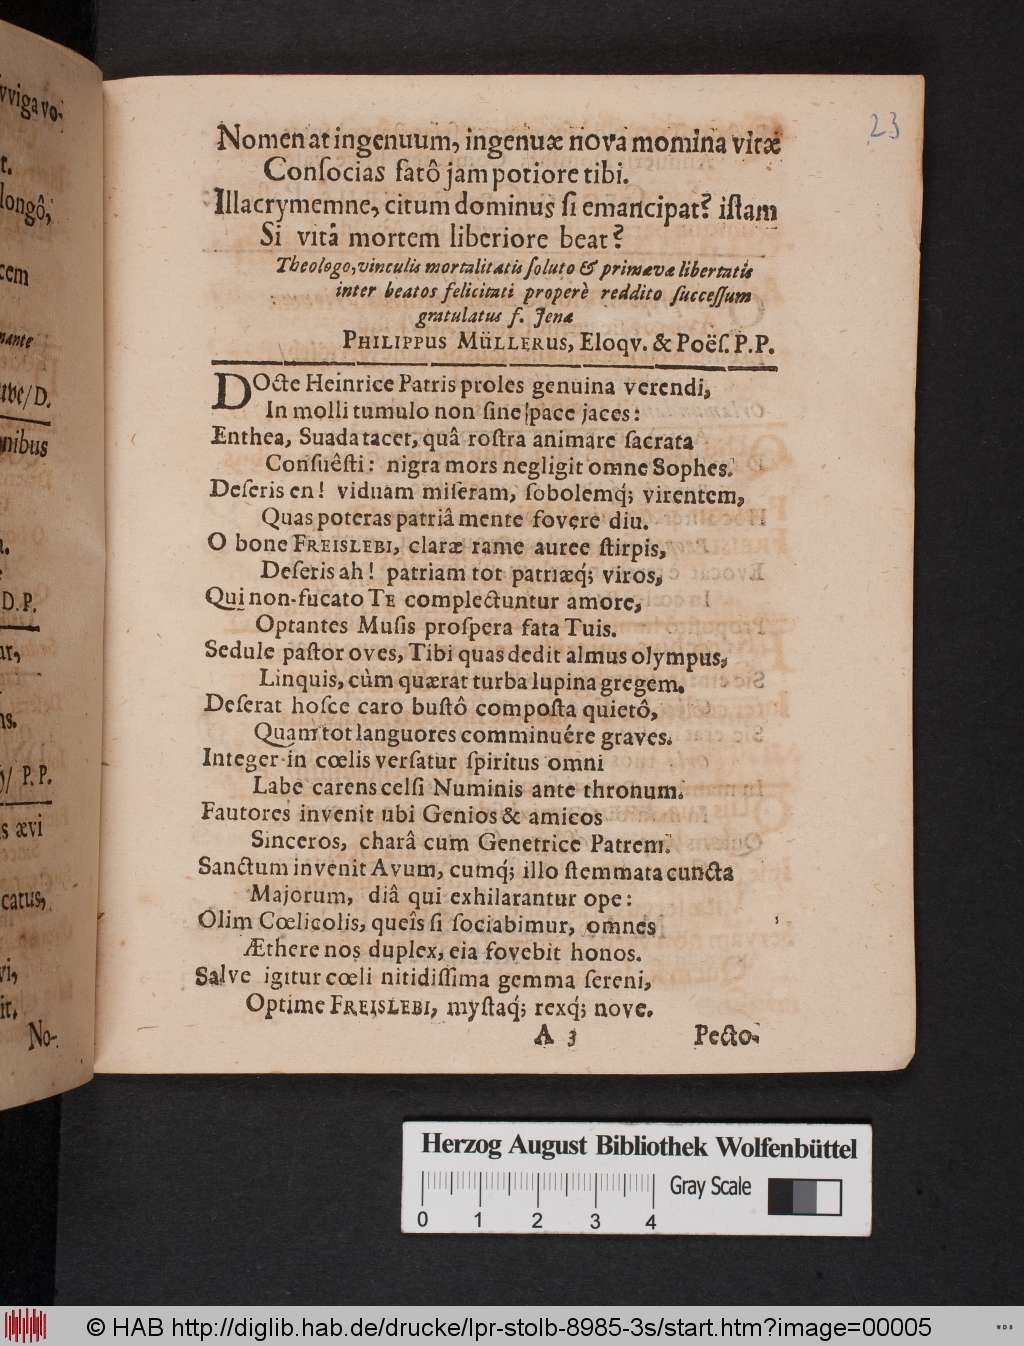 vvigavo-
t.
longô,
cem
nante
uve/ D.
onibus
D. P.
ur,
ns.
)/ P. P.
s ævi
catus,
vi,
it.
No-
23
Nomen at ingenuum, ingenuæ nova momina vitæ
Conſocias fatô jam potiore tibi.
Illacrymemne, citum dominus ſi emancipat? iſtam
Si vitâ mortem liberiore beat?
Theologo, vinculis mortalitatis ſoluto & primæva libertatis
inter beatos felicitati properè reddito ſucceſſum
gratulatus f. Jenæ
PHILIPPUS MÜLLERUS, Eloqv. & Poëſ. P. P.
DOcte Heinrice Patris proles genuina verendi,
In molli tumulo non ſine pace jaces:
Enthea, Suada tacet, quâ roſtra animare ſacrata
Conſuêſti: nigra mors negligit omne Sophes.
Deſeris en! viduam miſeram, ſobolemq́; virentem,
Quas poteras patriâ mente fovere diu.
O bone FREISLEBI, claræ rame auree ſtirpis,
Deſeris ah! patriam tot patriæq́; viros,
Qui non-fucato TE complectuntur amore,
Optantes Muſis proſpera fata Tuis.
Sedule paſtor oves, Tibi quas dedit almus olympus,
Linquis, cùm quærat turba lupina gregem.
Deſerat hoſce caro buſtô compoſta quietô,
Quam tot languores comminuére graves.
Integer in cœlis verſatur ſpiritus omni
Labe carens celſi Numinis ante thronum.
Fautores invenit ubi Genios & amicos
Sinceros, charâ cum Genetrice Patrem.
Sanctum invenit Avum, cumq́; illo ſtemmata cuncta
Majorum, diâ qui exhilarantur ope:
Olim Cœlicolis, queîs ſi ſociabimur, omnes
Æthere nos duplex, eia fovebit honos.
Salve igitur cœli nitidiſſima gemma ſereni,
Optime FREISLEBI, myſtaq́; rexq́; nove.
A 3 Pecto-
Herzog August Bibliothek Wolfenbüttel
Gray Scale
0 1 2 3 4
© HAB http://diglib.hab.de/drucke/lpr-stolb-8985-3s/start.htm?image=00005